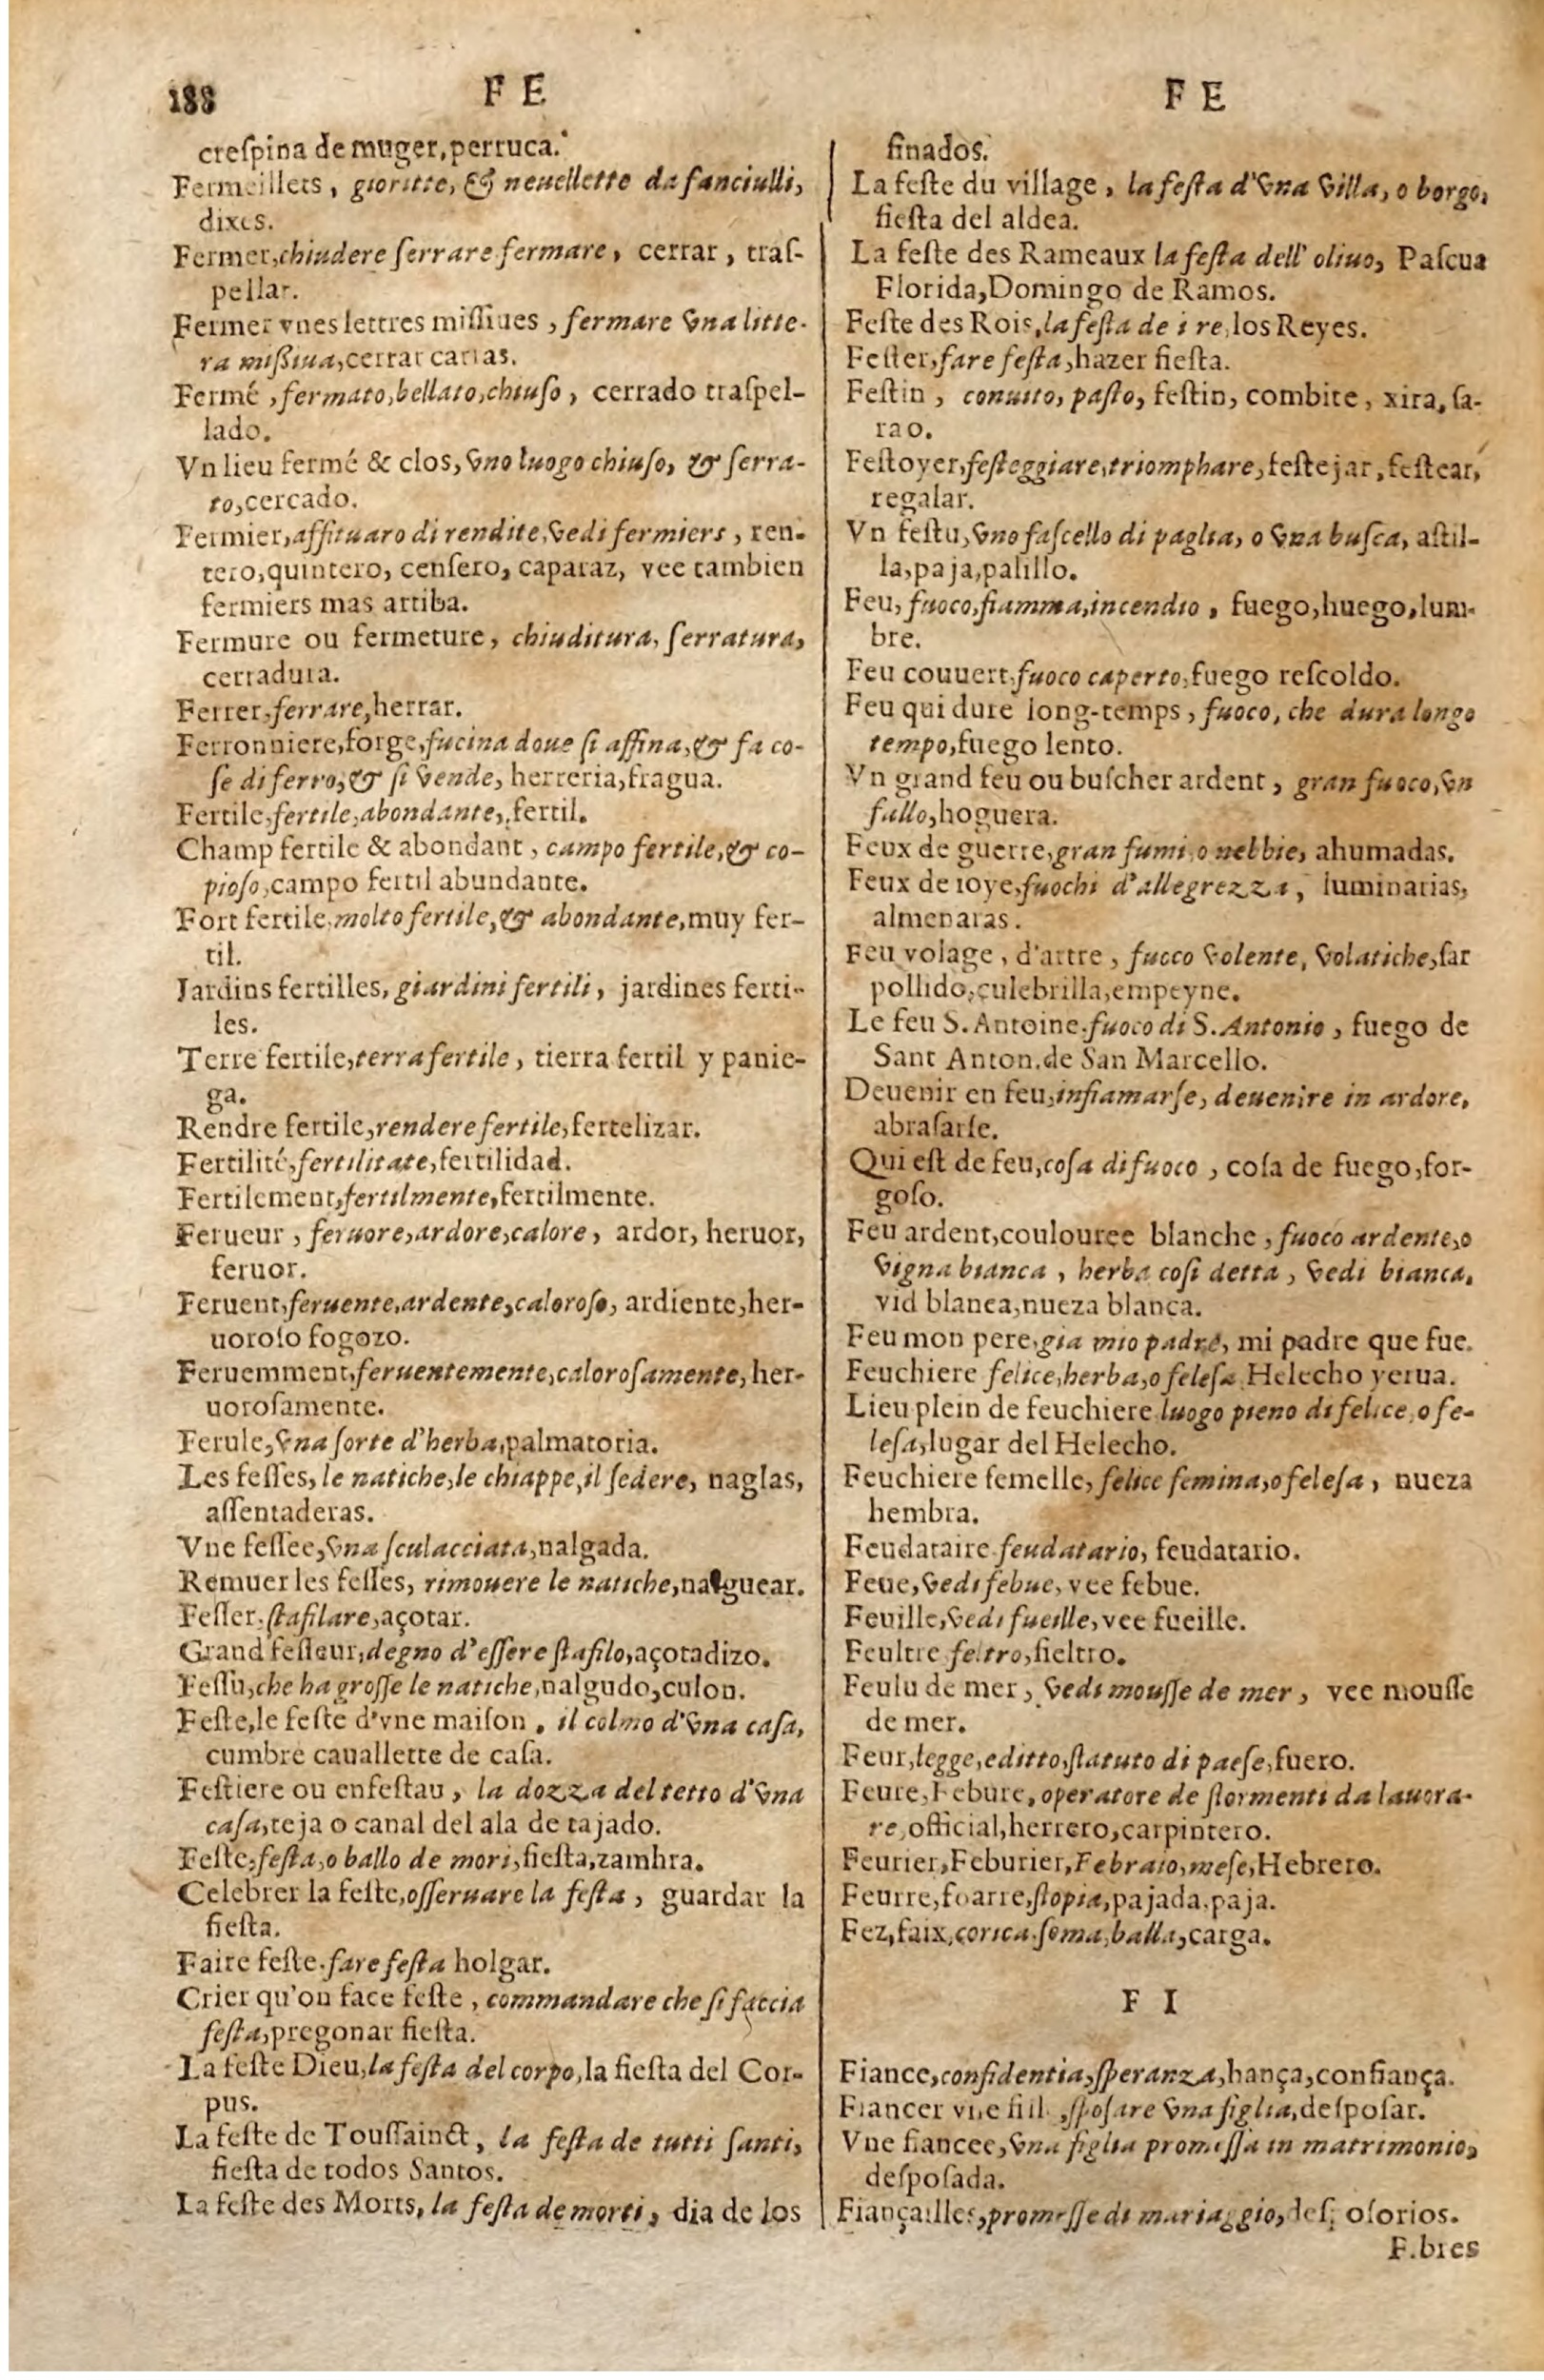 188
F E
F E
creſpina de muger, perruca.
Fermeillets, gioritte, & neuellette da fanciulli,
dixes.
Fermer, chiudere ſerrare fermare, cerrar, traſ-
pellar.
Fermer vnes lettres miſſiues, fermare vna litte-
ra miſſiua, cerrar cartas.
Fermé, fermato, bellato, chiuſo, cerrado traſpel-
lado.
Vn lieu fermé & clos, vno luogo chiuſo, & ſerra-
to, cercado.
Fermier, affituaro di rendite, vedi fermiers, ren-
tero, quintero, cenſero, caparaz, vee tambien
fermiers mas arriba.
Fermure ou fermeture, chiuditura, ſerratura,
cerradura.
Ferrer, ferrare, herrar.
Ferronniere, forge, fucina doue ſi affina, & fa co-
ſe di ferro, & ſi vende, herreria, fragua.
Fertile, fertile, abondante, fertil.
Champ fertile & abondant, campo fertile, & co-
pioſo, campo fertil abundante.
Fort fertile, molto fertile, & abondante, muy fer-
til.
Jardins fertilles, giardini fertili, jardines ferti-
les.
Terre fertile, terra fertile, tierra fertil y panie-
ga.
Rendre fertile, rendere fertile, fertelizar.
Fertilité, fertilitate, fertilidad.
Fertilement, fertilmente, fertilmente.
Ferueur, feruore, ardore, calore, ardor, heruor,
feruor.
Feruent, feruente, ardente, caloroſo, ardiente, her-
uoroſo fogozo.
Feruemment, feruentemente, caloroſamente, her-
uoroſamente.
Ferule, vna ſorte d'herba, palmatoria.
Les feſſes, le natiche, le chiappe, il ſedere, naglas,
aſſentaderas.
Vne feſſee, vna ſculacciata, nalgada.
Remuer les feſſes, rimouere le natiche, nalguear.
Feſſer, ſtafilare, açotar.
Grand feſſeur, degno d'eſſere ſtafilo, açotadizo.
Feſſu, che ha groſſe le natiche, nalgudo, culon.
Feſte, le feſte d'vne maiſon. il colmo d'vna caſa,
cumbre cauallette de caſa.
Feſtiere ou enfeſtau, la dozza del tetto d'vna
caſa, teja o canal del ala de tajado.
Feſte, feſta, o ballo de mori, fieſta, zamhra.
Celebrer la feſte, oſſeruare la feſta, guardar la
fieſta.
Faire feſte. fare feſta holgar.
Crier qu'on face feſte, commandare che ſi faccia
feſta, pregonar fieſta.
La feſte Dieu, la feſta del corpo, la fieſta del Cor-
pus.
La feſte de Touſſainct, la feſta de tutti ſanti,
fieſta de todos Santos.
La feſte des Morts, la feſta de morti, dia de los
finados.
La feſte du village, la feſta d'vna villa, o borgo,
fieſta del aldea.
La feſte des Rameaux la feſta dell' oliuo, Paſcua
Florida, Domingo de Ramos.
Feſte des Rois, la feſta de i re, los Reyes.
Feſter, fare feſta, hazer fieſta.
Feſtin, conuito, paſto, feſtin, combite, xira, ſa-
rao.
Feſtoyer, feſteggiare, triomphare, feſtejar, feſtear,
regalar.
Vn feſtu, vno faſcello di paglia, o vna buſca, aſtil-
la, paja, palillo.
Feu, fuoco, fiamma, incendio, fuego, huego, lum-
bre.
Feu couuert, fuoco caperto, fuego reſcoldo.
Feu qui dure long-temps, fuoco, che dura longo
tempo, fuego lento.
Vn grand feu ou buſcher ardent, gran fuoco, vn
fallo, hoguera.
Feux de guerre, gran fumi, o nebbie, ahumadas.
Feux de ioye, fuochi d'allegrezza, luminarias,
almenaras.
Feu volage, d'artre, fuoco volente, volatiche, ſar
pollido, culebrilla, empeyne.
Le feu S. Antoine. fuoco di S. Antonio, fuego de
Sant Anton. de San Marcello.
Deuenir en feu, infiamarſe, deuenire in ardore,
abraſarſe.
Qui eſt de feu, coſa di fuoco, coſa de fuego, for-
goſo.
Feu ardent, coulouree blanche, fuoco ardente, o
vigna bianca, herba coſi detta, vedi bianca,
vid blanca, nueza blanca.
Feu mon pere, gia mio padre, mi padre que fue.
Feuchiere felice, herba, o feleſa. Helecho yerua.
Lieu plein de feuchiere luogo pieno di felice, o fe-
leſa, lugar del Helecho.
Feuchiere femelle, felice femina, o feleſa, nueza
hembra.
Feudataire. feudatario, feudatario.
Feue, vedi febue, vee febue.
Feuille, vedi fueille, vee fueille.
Feultre feltro, fieltro.
Feulu de mer, vedi mouſſe de mer, vee mouſſe
de mer.
Feur, legge, editto, ſtatuto di paeſe, fuero.
Feure, Febure, operatore de ſtormenti da lauora-
re, official, herrero, carpintero.
Feurier, Feburier, Febraio, meſe, Hebrero.
Feurre, foarre, ſtopia, pajada, paja.
Fez, faix, corica. ſoma, balla, carga.
F I
Fiance, confidentia, ſperanza, hança, confiança.
Fiancer vne fill, ſpoſare vna figlia, deſpoſar.
Vne fiancee, vna figlia promeſſa in matrimonio,
deſpoſada.
Fiançailles, promeſſe di mariaggio, deſpoſorios.
F.bres